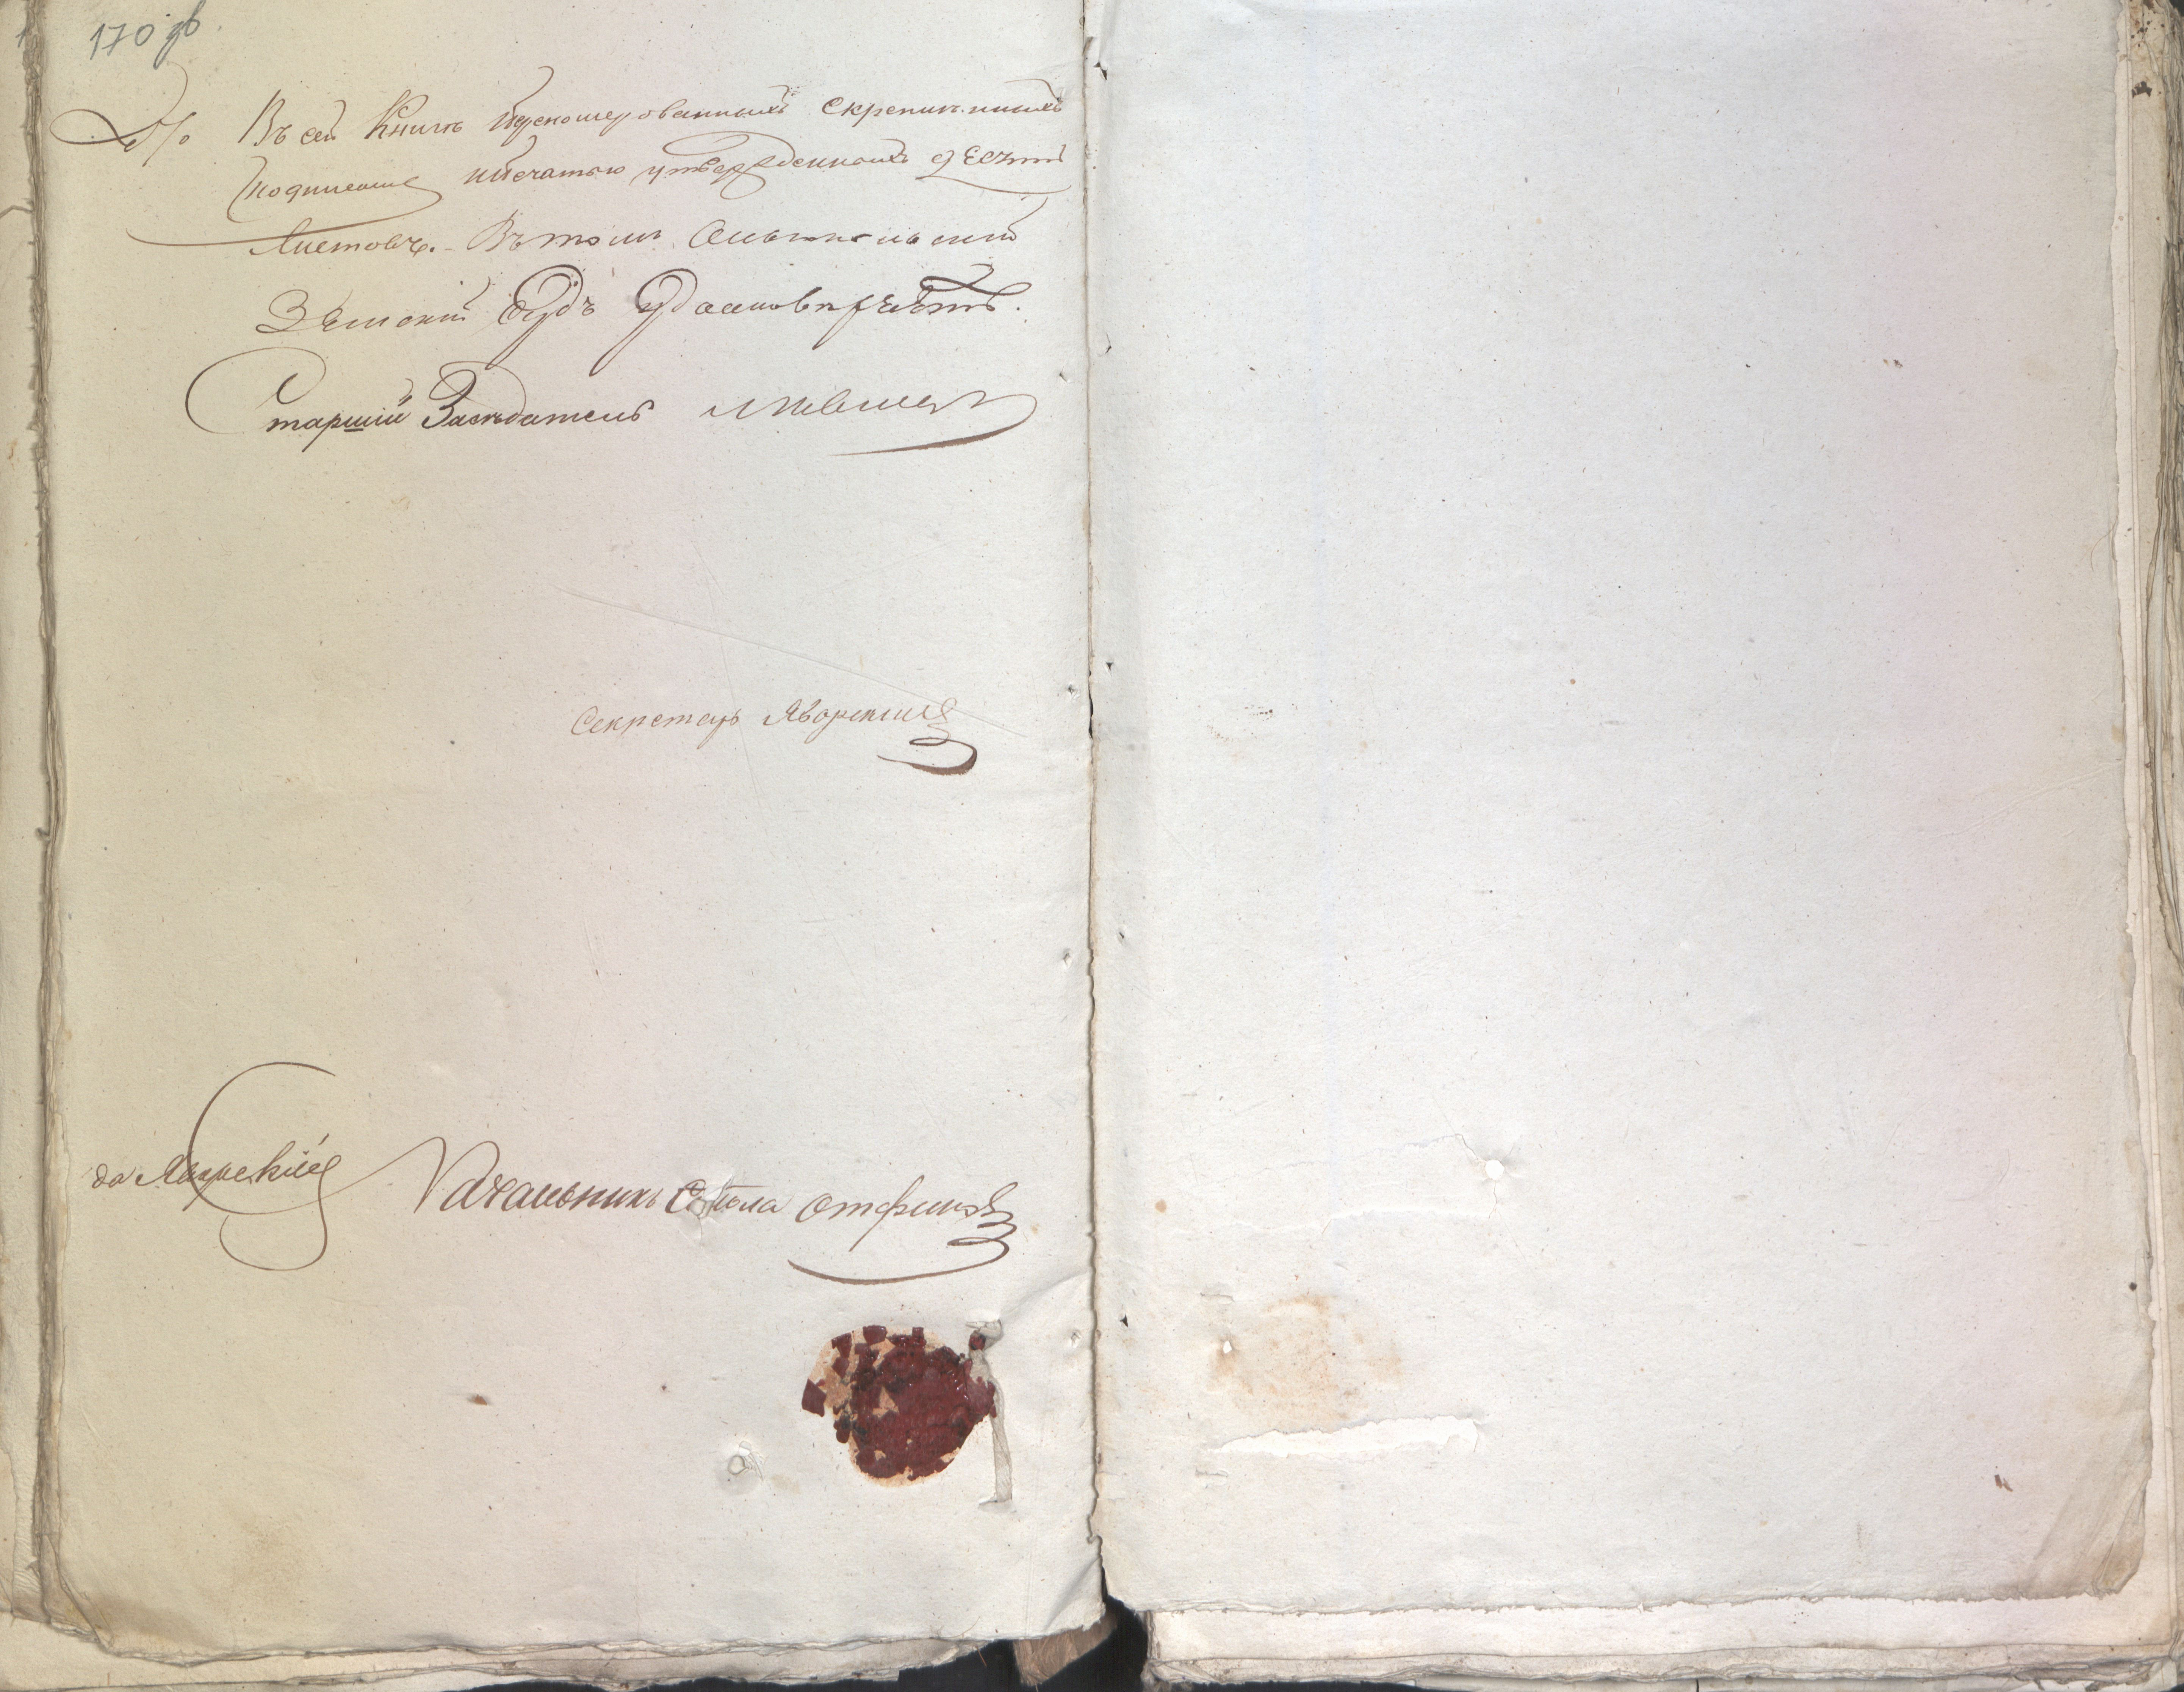 170 зв
Въ сей Книгѣ перенумерованныхъ Скрепленныхъ
подписью и печатью утвержденныхъ десять
Листовъ. Въ томъ
Земскій Судъ удостовѣряетъ.
Старшій Засѣдатель
Секретарь Яворскій
Начальникъ Стола